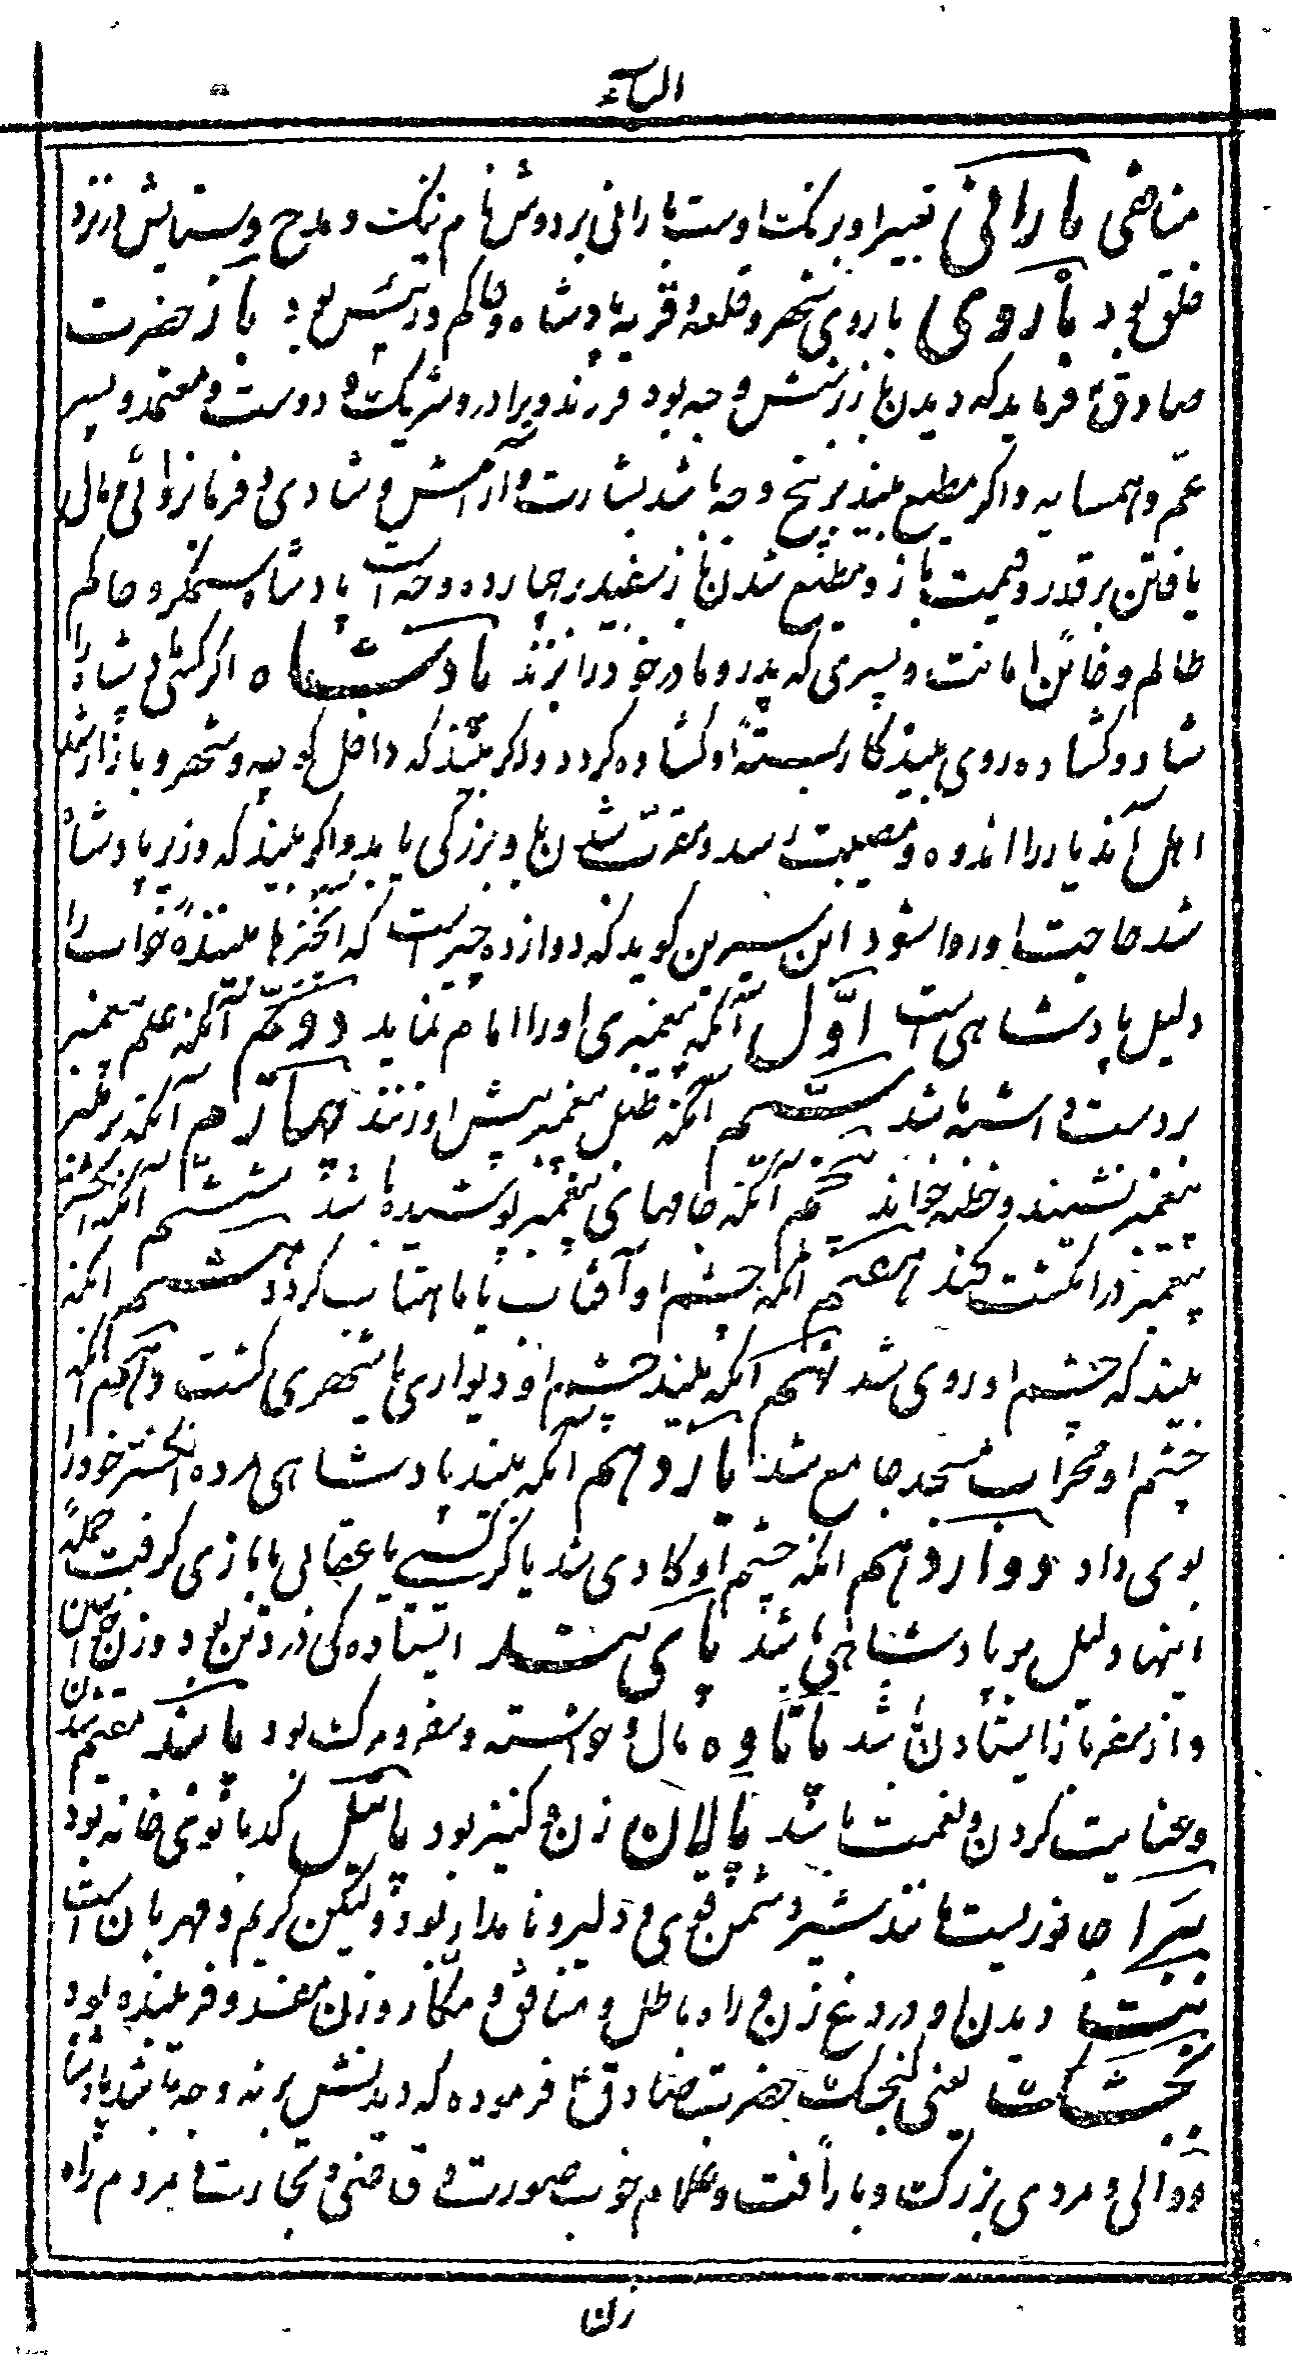 الباء
مناضی بارانی تعبیر او برکت اوست بارانی بردوش نام نیکت و مدح و ستایش در نزد
خلق بود باروی باروی شهر و قلعه و قریه پادشاه و حاکم و رئیس بود باز حضرت
صادق ع فرماید که دیدن باز بر شش وجه بود فرزند و برادر و شریک و دوست و معتمد و پسر
عم و همسایه و اگر مطیع بیند بر پنج وجه باشد بشارت و آرامش و شادی و فرمانروائی و مال
یافتن بر قدر و قیمت باز و مطیع شدن باز سفید بر چهارده وجه است پادشاه ستمگر و حاکم
ظالم و خائن امانت و پسری که پدر و مادر خود را بزند پادشاه اگر کسی پادشاه را
شاد و گشاده روی بیند کار بسته او گشاده گردد و اگر بیند که داخل کوچه و شهر و بازار شد
اهل آندیار را اندوه و مصیبت رسد و مقرب شدن بلا و بزرگی یابد و اگر بیند که وزیر پادشاه
شد حاجت او روا شود ابن سیرین گوید که دوازده چیز است که آنچیزها بیننده خواب را
دلیل پادشاهی است اول آنکه پیغمبری او را امام نماید دویم آنکه علم پیغمبر
بر دست داشته باشد سیم آنکه طبل پیغمبر پیش او زنند چهارم آنکه بر منبر
پیغمبر نشیند و خطبه خواند پنجم آنکه جامهای پیغمبر پوشیده باشد ششم آنکه انگشتر
پیغمبر در انگشت کند هفتم آنکه چشم او آفتاب یا ماهتاب گردد هشتم آنکه
بیند که چشم او روی شد نهم آنکه بیند چشم او دیواری یا شهری گشت دهم آنکه
چشم او محراب مسجد جامع شد یازدهم آنکه بیند پادشاهی مرده انگشتر خود را
بوی داد دوازدهم آنکه چشم او گاوی شد یا کرکسی یا عقابی یا بازی گرفت جمله
اینها دلیل بر پادشاهی باشد پای بند ایستادگی در دین بود و زن خواستن
و از سفر باز ایستادن باشد پاتاوه مال و خواسته و سفر و مرکب بود پابند مقیم شدن
و عنایت کردن و نعمت باشد پالان زن و کنیز بود پاتیل کدبانوی خانه بود
ببر جانوریست مانند شیر دشمن قوی و دلیر و نامدار بود ولیکن کریم و مهربان است
دیدن او دروغ زن و راه باطل و منافق و مکار و زن مفسد و فریبنده بود
بنجشک یعنی گنجشک حضرت صادق ع فرموده که دیدنش بر نه وجه باشد پادشاه
و والی و مردی بزرگ و با رأفت و غلام خوب صورت و قاضی و تجارت و مردم راه
زن